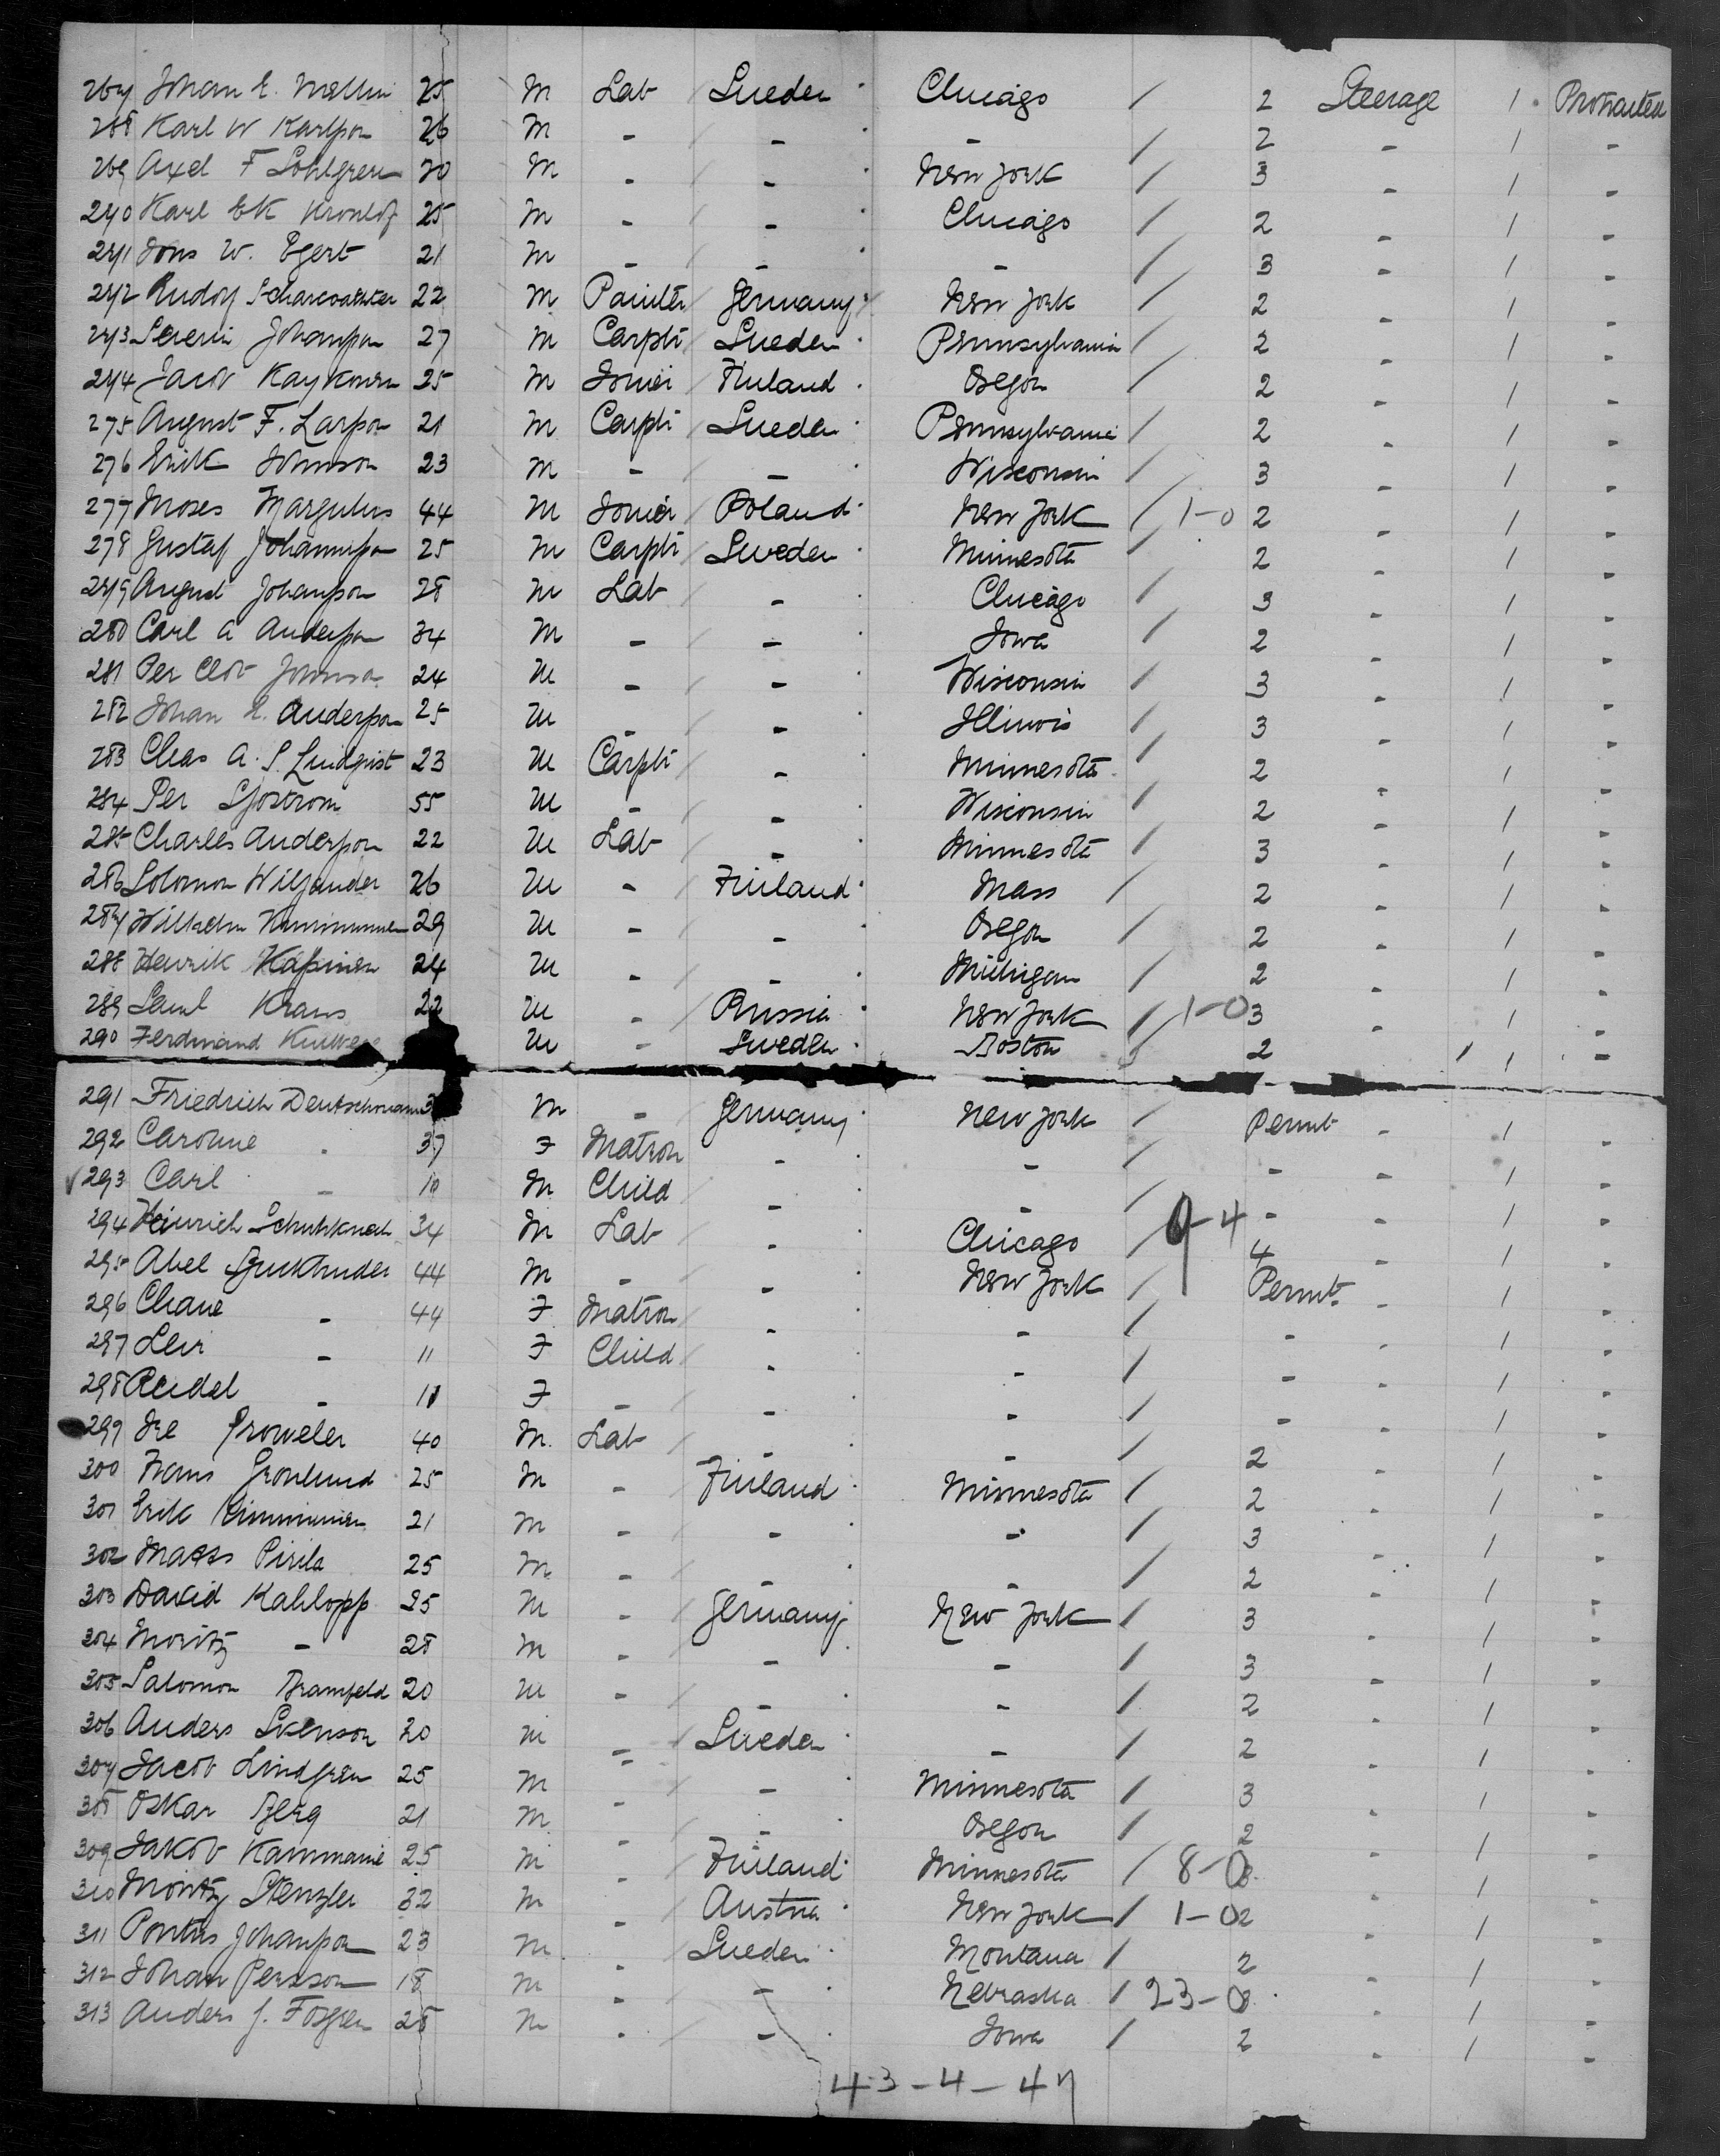 267 Johan E. Mellin 25 M Lab Sueden Chicago / 2 Steerage 1 Protracted
268 Karl W Karlsson 26 M - - - / 2 - 1 -
269 Axel F Sohlgren 20 M - - New York / 3 - 1 -
270 Karl EK 25 M - - Chicago / 2 - 1 -
271 Jons W. Egert 21 M - - - / 3 - 1 -
272 Rudolf 22 M Painter Germany New York / 2 - 1 -
273 Severin Johansson 27 M Carptr Sueden Pennsylvania / 2 - 1 -
274 Jacob Kaykonen 25 M Joiner Finland Oregon / 2 - 1 -
275 August F. Larsson 21 M Carptr Sueden Pennsylvania / 2 - 1 -
276 Erik Johnson 23 M - - Wisconsin / 3 - 1 -
277 Moses Margulies 44 M Joiner Poland New York / 1-0 2 - 1 -
278 Gustaf Johannsson 25 M Carptr Sweden Minnesota / 2 - 1 -
279 August Johansson 28 M Lab - Chicago / 3 - 1 -
280 Carl A Andersson 34 M - - Iowa / 2 - 1 -
281 Per Olov Johnson 24 M - - Wisconsin / 3 - 1 -
282 Johan E. Andersson 25 M - - Illinois / 3 - 1 -
283 Claes A. S. Lindqvist 23 M Carptr - Minnesota / 2 - 1 -
284 Per Sjostrom 55 M - - Wisconsin / 2 - 1 -
285 Charles Andersson 22 M Lab - Minnesota / 3 - 1 -
286 Solomon Wiljander 26 M - Finland Mass / 2 - 1 -
287 Wilhelm 29 M - - Oregon / 2 - 1 -
288 Henrik Kapinen 24 M - - Michigan / 2 - 1 -
289 Saml Kraus 22 M - Russia New York / 1-0 3 - 1 -
290 Ferdinand M - Sweden Boston 2 1 -
291 Friedrich Deutschmann 3 M - Germany New York / Permt - 1 -
292 Caroline - 37 F Matron - - / - - 1 -
293 Carl - 10 M Child - - / - - 1 -
294 Heinrich Schuhknech 34 M Lab - Chicago / 9-4 4 - 1 -
295 Abel 44 M - - New York / Permt - 1 -
296 Chane - 44 F Matron - - / - - 1 -
297 Leir - 11 F Child - - / - - 1 -
298 Reidel - 11 F - - - / - - 1 -
299 Ire Proweler 40 M Lab - - / 2 - 1 -
300 Frans Gronlund 25 M - Finland Minnesota / 2 - 1 -
301 Erik 21 M - - - / 3 - 1 -
302 Matts Pirila 25 M - - - / 2 - 1 -
303 David Kahlopp 25 M - Germany New York / 3 - 1 -
304 Moritz - 28 M - - - / 3 - 1 -
305 Salomon Bramfeld 20 M - - - / 2 - 1 -
306 Anders Svenson 20 M - Sueden - / 2 - 1 -
307 Jacob Lindgren 25 M - - Minnesota / 3 - 1 -
308 Oskar Berg 21 M - - Oregon / 2 - 1 -
309 Jakob Kammanie 25 M - Finland Minnesota / 8-0 - 1 -
310 Moritz Stenzler 32 M - Austria New York / 1-0 2 - 1 -
311 Pontus Johansson 23 M - Sueden Montana / 2 - 1 -
312 Johan Persson 18 M - - Nebraska / 23-0 - 1 -
313 Anders J. Fosgren 28 M - - Iowa / 2 - 1 -
43-4-47